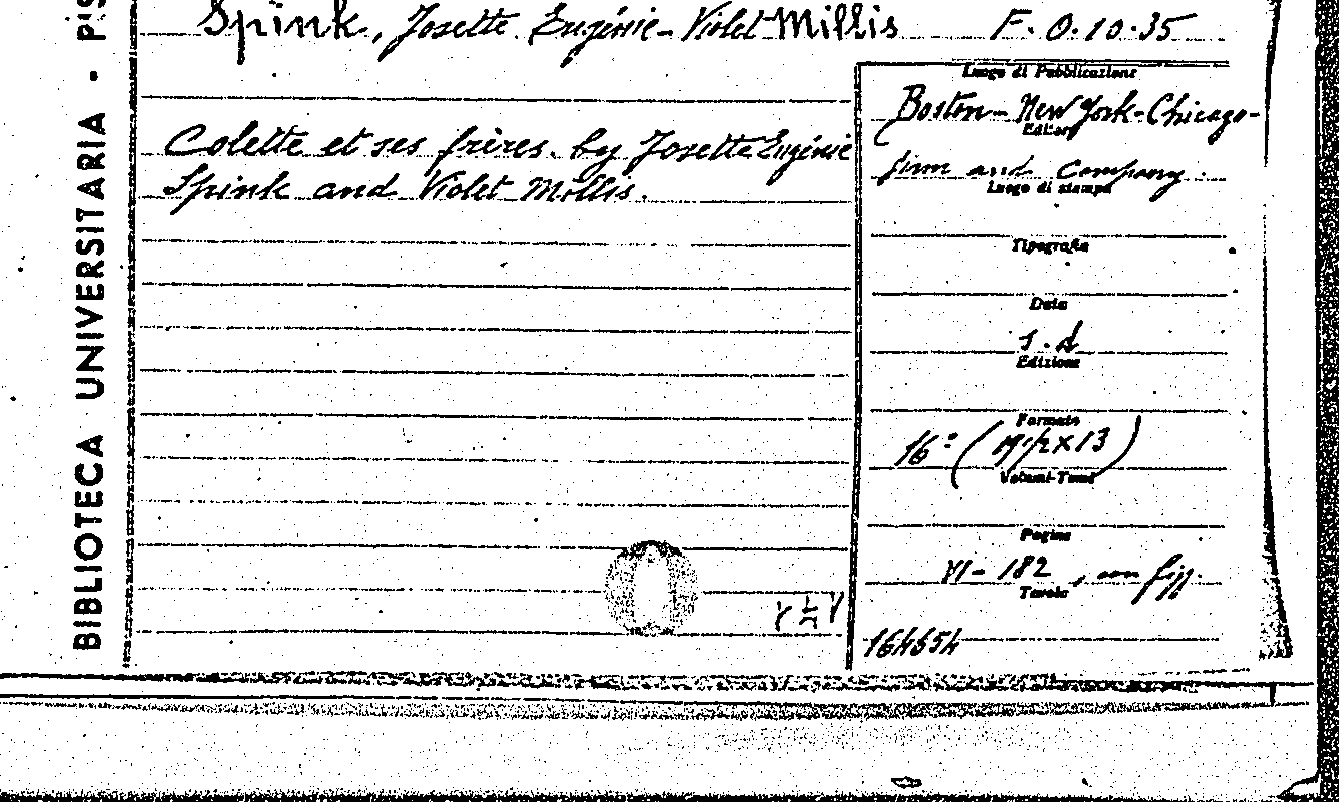 BIBLIOTECA UNIVERSITARIA - PIS
Spink, Josette Eugénie - Violet Millis
F. O. 10. 35
Colette et ses frères. by Josette Eugénie
Spink and Violet Millis.
Luogo di Pubblicazione
Boston - New York - Chicago -
Editore
and Company.
Luogo di stampa
Tipografia
Data
s. d
Edizione
Formato
16°
x13)
Volumi-Tomi
Pagine
VI - 182, con figg.
Tavole
164654